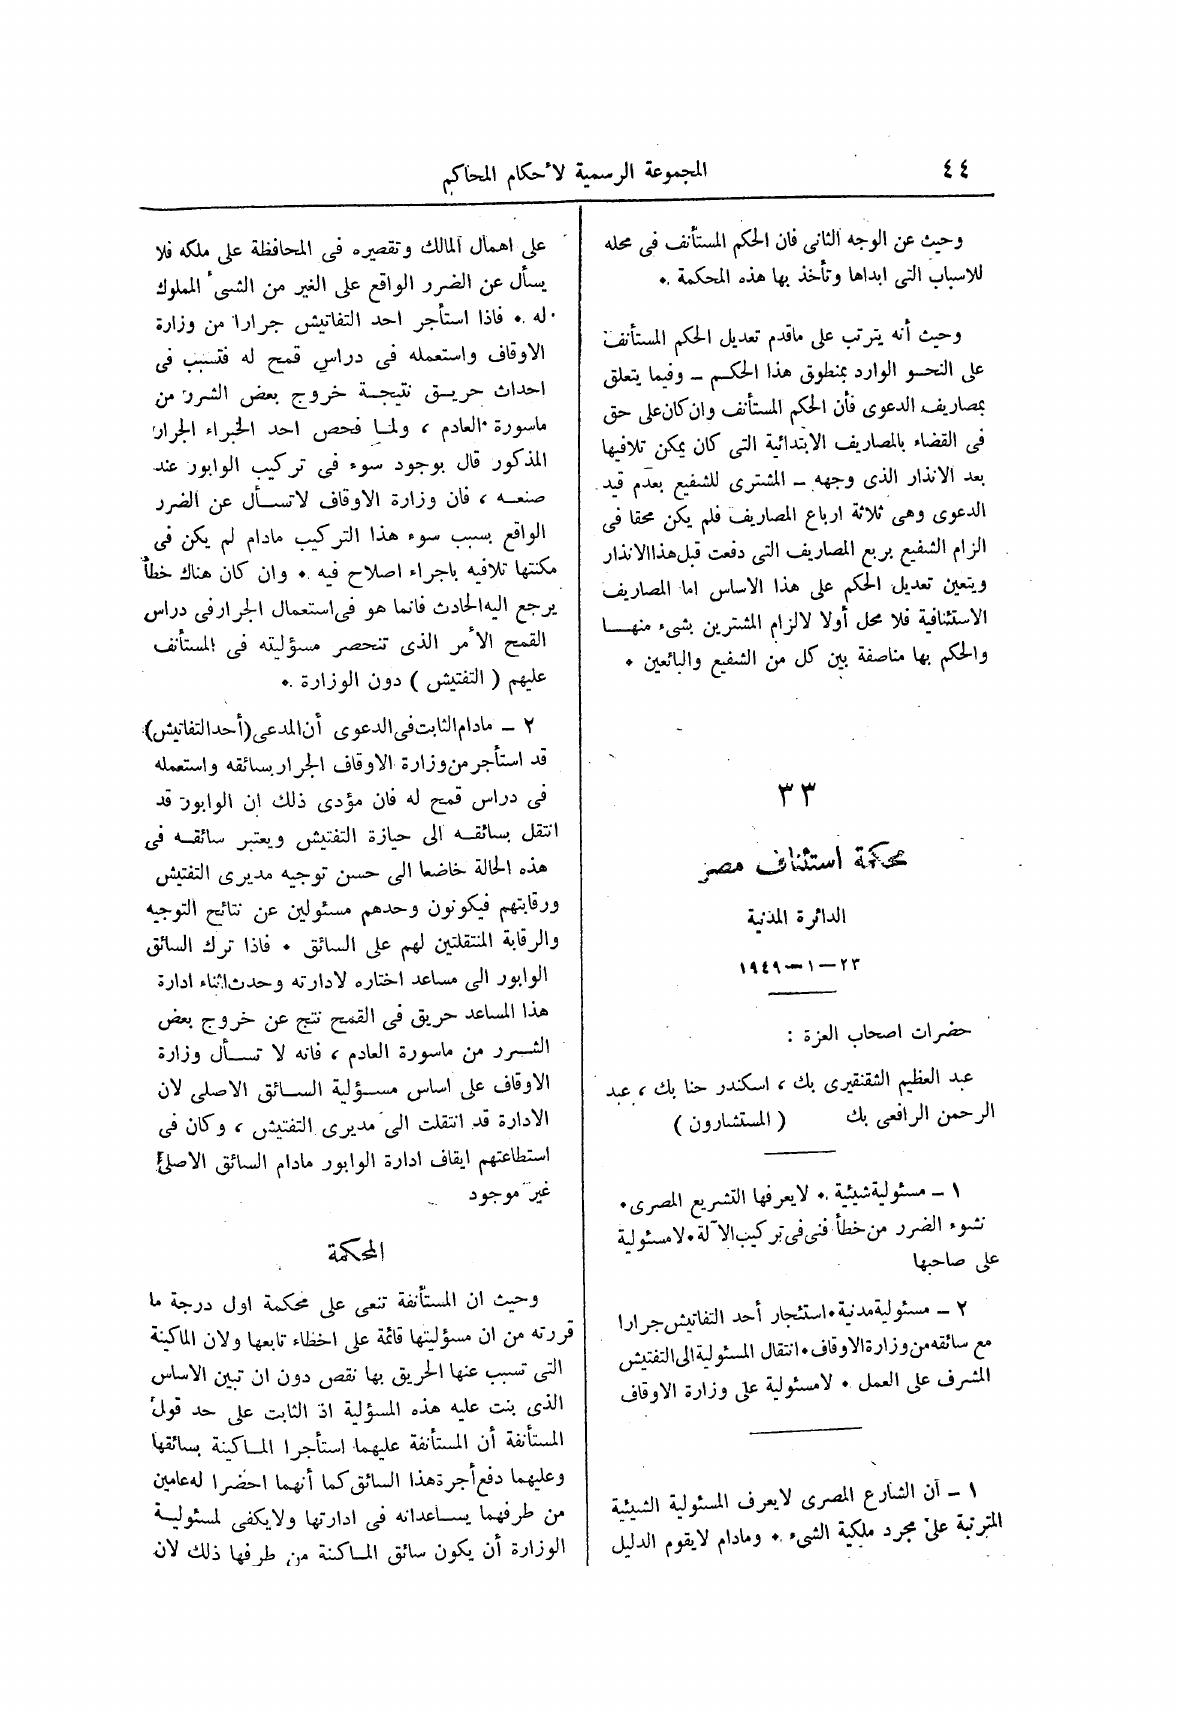 ٤٤
المجموعة الرسمية لأحكام المحاكم
وحيث عن الوجه الثانى فان الحكم المستأنف فى محله
للاسباب التى ابداها وتأخذ بها هذه المحكمة .
وحيث أنه يترتب على ماقدم تعديل الحكم المستأنف
على النحو الوارد بمنطوق هذا الحكم – وفيما يتعلق
بمصاريف الدعوى فأن الحكم المستأنف وان كان على حق
فى القضاء بالمصاريف الابتدائية التى كان يمكن تلافيها
بعد الانذار الذى وجهه – المشترى للشفيع بعدم قيد
الدعوى وهى ثلاثة ارباع المصاريف فلم يكن محقا فى
الزام الشفيع بربع المصاريف التى دفعت قبل هذا الانذار
ويتعين تعديل الحكم على هذا الاساس اما المصاريف
الاستئنافية فلا محل أولا لالزام المشترين بشىء منها
والحكم بها مناصفة بين كل من الشفيع والبائعين .
٣٣
محكمة استئناف مصر
الدائرة المدنية
٢٣ – ١ – ١٩٤٩
حضرات اصحاب العزة :
عبد العظيم الشقنقيرى بك ، اسكندر حنا بك ، عبد
الرحمن الرافعى بك ( المستشارون )
١ – مسئولية شيئية . لايعرفها التشريع المصرى .
نشوء الضرر من خطأ فنى فى تركيب الآلة . لامسئولية
على صاحبها
٢ – مسئولية مدنية . استئجار أحد التفاتيش جرارا
مع سائقه من وزارة الاوقاف . انتقال المسئولية الى التفتيش
المشرف على العمل . لامسئولية على وزارة الاوقاف
١ – أن الشارع المصرى لايعرف المسئولية الشيئية
المترتبة على مجرد ملكية الشىء . ومادام لايقوم الدليل
على اهمال المالك وتقصيره فى المحافظة على ملكه فلا
يسأل عن الضرر الواقع على الغير من الشىء المملوك
له . فاذا استأجر احد التفاتيش جرارا من وزارة
الاوقاف واستعمله فى دراس قمح له فتسبب فى
احداث حريق نتيجة خروج بعض الشرر من
ماسورة العادم ، ولما فحص احد الخبراء الجرار
المذكور قال بوجود سوء فى تركيب الوابور عند
صنعه ، فان وزارة الاوقاف لاتسأل عن الضرر
الواقع بسبب سوء هذا التركيب مادام لم يكن فى
مكنتها تلافيه باجراء اصلاح فيه . وان كان هناك خطأ
يرجع اليه الحادث فانما هو فى استعمال الجرار فى دراس
القمح الأمر الذى تنحصر مسؤليته فى المستأنف
عليهم ( التفتيش ) دون الوزارة .
٢ – مادام الثابت فى الدعوى أن المدعى (أحد التفاتيش)
قد استأجر من وزارة الاوقاف الجرار بسائقه واستعمله
فى دراس قمح له فان مؤدى ذلك ان الوابور قد
انتقل بسائقه الى حيازة التفتيش ويعتبر سائقه فى
هذه الحالة خاضعا الى حسن توجيه مديرى التفتيش
ورقابتهم فيكونون وحدهم مسئولين عن نتائج التوجيه
والرقابة المنتقلتين لهم على السائق . فاذا ترك السائق
الوابور الى مساعد اختاره لادارته وحدث اثناء ادارة
هذا المساعد حريق فى القمح نتج عن خروج بعض
الشرر من ماسورة العادم ، فانه لا تسأل وزارة
الاوقاف على اساس مسؤلية السائق الاصلى لان
الادارة قد انتقلت الى مديرى التفتيش ، وكان فى
استطاعتهم ايقاف ادارة الوابور مادام السائق الاصلى
غير موجود
المحكمة
وحيث ان المستأنفة تنعى على محكمة اول درجة ما
قررته من ان مسؤليتها قائمة على اخطاء تابعها ولان الماكينة
التى تسبب عنها الحريق بها نقص دون ان تبين الاساس
الذى بنت عليه هذه المسؤلية اذ الثابت على حد قول
المستأنفة أن المستأنفة عليهما استأجرا الماكينة بسائقها
وعليهما دفع أجرة هذا السائق كما أنهما احضرا له عاملين
من طرفهما يساعدانه فى ادارتها ولايكفى لمسئولية
الوزارة أن يكون سائق الماكنة من طرفها ذلك لان